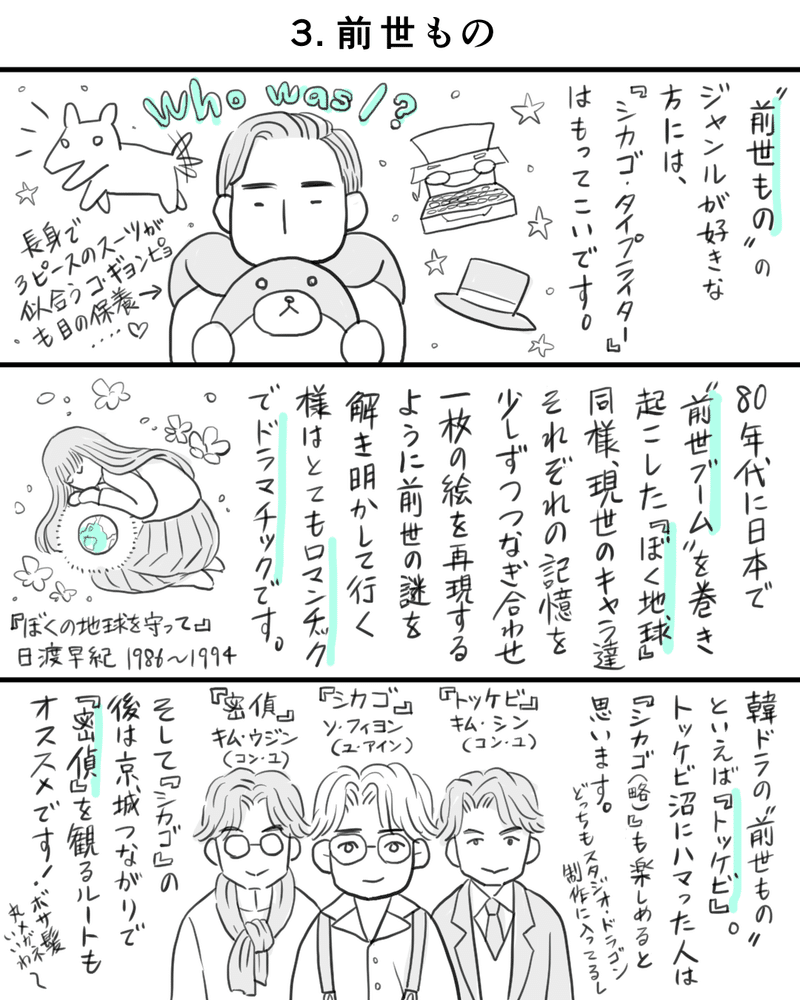 3. 前世もの
"前世もの"の
ジャンルが好きな
方には、
『シカゴ・タイプライター』
はもってこいです。
Who was I?
長身で
3ピースのスーツが
似合うコ・ギョンピョ
も目の保養→
....♡
80年代に日本で
"前世ブーム"を巻き
起こした『ぼく地球』
同様、現世のキャラ達
それぞれの記憶を
少しずつつなぎ合わせ
一枚の絵を再現する
ように前世の謎を
解き明かして行く
様はとてもロマンチック
でドラマチックです。
『ぼくの地球を守って』
日渡早紀 1986〜1994
韓ドラの"前世もの"
といえば『トッケビ』。
トッケビ沼にハマった人は
『シカゴ(略)』も楽しめると
思います。
どっちもスタジオ・ドラゴン
制作に入ってるし
『トッケビ』
キム・シン
(コン・ユ)
『シカゴ』
ソ・フィヨン
(ユ・アイン)
『密偵』
キム・ウジン
(コン・ユ)
そして『シカゴ』の
後は京城つながりで
『密偵』を観るルートも
オススメです!
ボサ髪
丸メガネ
いいわ〜